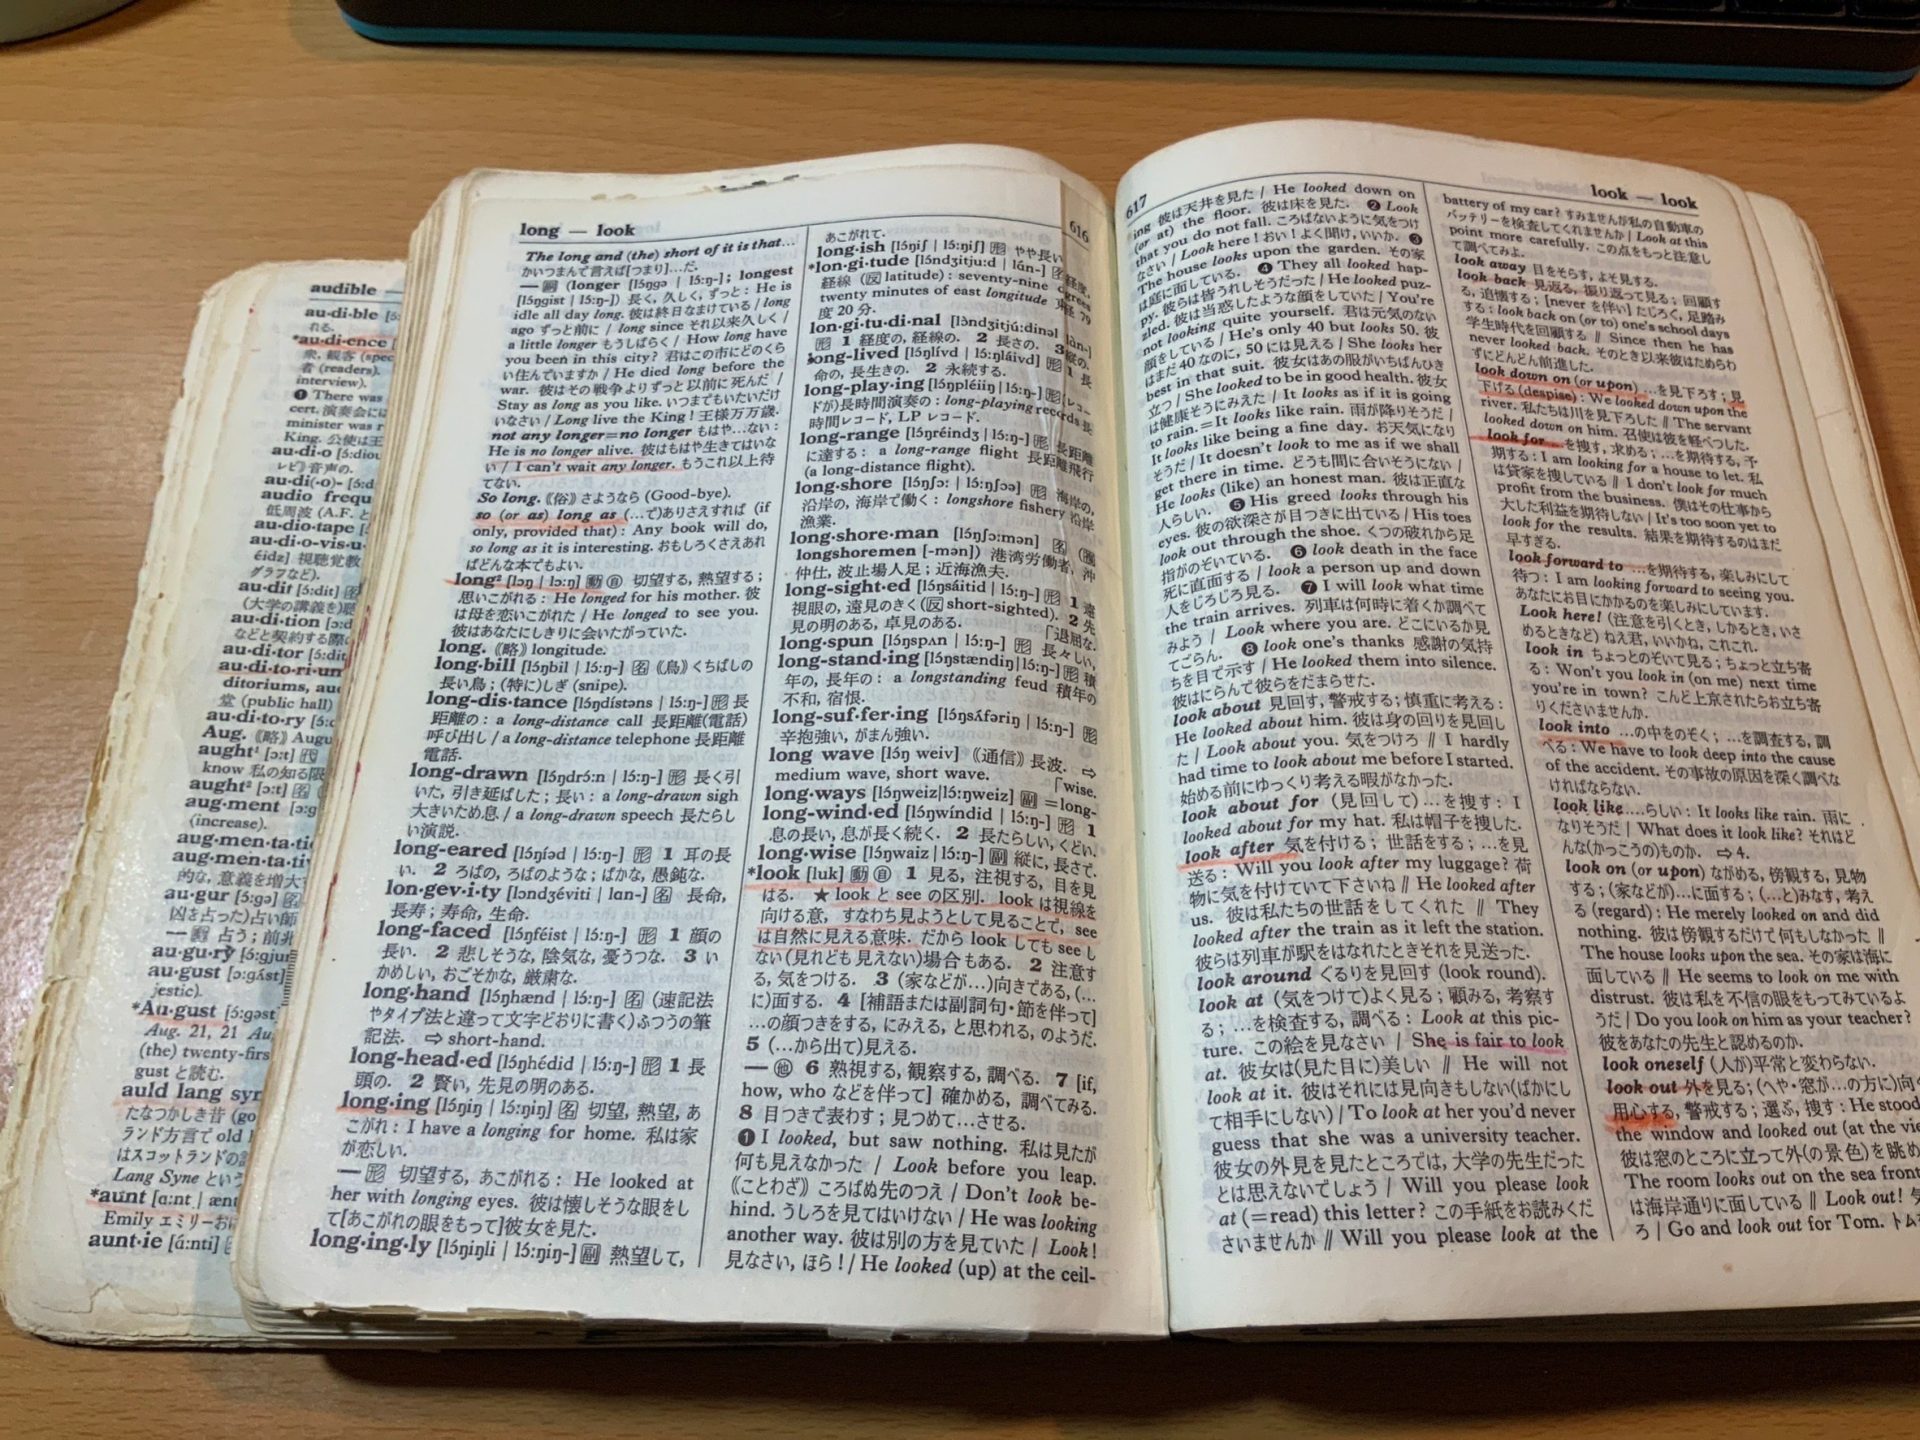 audible —
au·di·ble
れる.
*au·di·ence
衆, 観客
者 (readers).
interview).
❶ There was
cert. 演奏会に
minister was
King. 公使は王
au·di·o
レビ) 音声の.
au·di(·o)-
audio
低周波 (A.F. と
au·dio·tape
au·di·o-vis·u
視聴覚教
グラフなど).
au·dit [ɔ́:dit]
(大学の講義を)聴
au·di·tion
などと契約する際
au·di·tor
au·di·to·ri·um
ditoriums,
堂 (public hall)
au·di·to·ry
Aug. 《略》
aught¹ [ɔ:t] 代
know 私の知る限
aught² [ɔ:t] 名
aug·ment
(increase).
aug·men·ta·ti
aug·men·ta·tiv
的な, 意義を増大す
au·gur [ɔ́:gə] 名
凶を占った)占い師
— 動 占う; 前兆
au·gu·ry
au·gust [ɔ:gʌ́st]
jestic).
*Au·gust [ɔ́:gəst]
Aug. 21, 21
(the) twenty-firs
gust と読む.
auld lang syn
たなつかしき昔
ランド方言で old
はスコットランドの
Lang Syne という
*aunt [ɑ:nt | ænt
Emily エミリーおば
aunt·ie [ɑ́:nti]
long — look
The long and (the) short of it is that...
かいつまんで言えば[つまり]...だ.
— 副 (longer [lɔ́ŋgə | lɔ́:ŋ-]; longest
[lɔ́ŋgist | lɔ́:ŋ-]) 長く, 久しく, ずっと: He is
idle all day long. 彼は終日なまけている / long
ago ずっと前に / long since それ以来久しく /
a little longer もうしばらく / How long have
you been in this city? 君はこの市にどのくら
い住んでいますか / He died long before the
war. 彼はその戦争よりずっと以前に死んだ /
Stay as long as you like. いつまでもいたいだけ
いなさい / Long live the King! 王様万万歳.
not any longer=no longer もはや...ない:
He is no longer alive. 彼はもはや生きてはいな
い / I can't wait any longer. もうこれ以上待
てない.
So long. 《俗》 さようなら (Good-bye).
so (or as) long as (...で)ありさえすれば (if
only, provided that): Any book will do,
so long as it is interesting. おもしろくさえあれ
ばどんな本でもよい.
long² [lɔŋ | lɔ:ŋ] 動 自 切望する, 熱望する;
思いこがれる: He longed for his mother. 彼
は母を恋いこがれた / He longed to see you.
彼はあなたにしきりに会いたがっていた.
long. 《略》 longitude.
long·bill [lɔ́ŋbil | lɔ́:ŋ-] 名 《鳥》 くちばしの
長い鳥; (特に)しぎ (snipe).
long-dis·tance [lɔ́ŋdístəns | lɔ́:ŋ-] 形 長
距離の: a long-distance call 長距離(電話)
呼び出し / a long-distance telephone 長距離
電話.
long-drawn [lɔ́ŋdrɔ́:n | lɔ́:ŋ-] 形 長く引
いた, 引き延ばした; 長い: a long-drawn sigh
大きいため息 / a long-drawn speech 長たらし
い演説.
long-eared [lɔ́ŋíəd | lɔ́:ŋ-] 形 1 耳の長
い. 2 ろばの, ろばのような; ばかな, 愚鈍な.
lon·gev·i·ty [lɔndʒéviti | lan-] 名 長命,
長寿; 寿命, 生命.
long-faced [lɔ́ŋféist | lɔ́:ŋ-] 形 1 顔の
長い. 2 悲しそうな, 陰気な, 憂うつな. 3 い
かめしい, おごそかな, 厳粛な.
long·hand [lɔ́ŋhænd | lɔ́:ŋ-] 名 (速記法
やタイプ法と違って文字どおりに書く)ふつうの筆
記法. ⇨ short-hand.
long-head·ed [lɔ́ŋhédid | lɔ́:ŋ-] 形 1 長
頭の. 2 賢い, 先見の明のある.
long·ing [lɔ́ŋiŋ | lɔ́:ŋiŋ] 名 切望, 熱望, あ
こがれ: I have a longing for home. 私は家
が恋しい.
— 形 切望する, あこがれる: He looked at
her with longing eyes. 彼は懐しそうな眼をし
て[あこがれの眼をもって]彼女を見た.
long·ing·ly [lɔ́ŋiŋli | lɔ́:ŋiŋ-] 副 熱望して,
616
あこがれて.
long·ish [lɔ́ŋiʃ | lɔ́:ŋiʃ] 形 やや長い
*lon·gi·tude [lɔ́ndʒitju:d | lɑ́n-] 名 経度,
経線 (反 latitude): seventy-nine degrees
twenty minutes of east longitude 東経 79
度 20 分.
lon·gi·tu·di·nal [lɔ̀ndʒitjú:dinəl | lɑ̀n-]
形 1 経度の, 経線の. 2 長さの. 3 縦の.
long-lived [lɔ́ŋlívd | lɔ́:ŋláivd] 形 1 長
命の, 長生きの. 2 永続する.
long-play·ing [lɔ́ŋpléiiŋ | lɔ́:ŋ-] 形 (レコー
ドが)長時間演奏の: long-playing records 長
時間レコード, LP レコード.
long-range [lɔ́ŋréindʒ | lɔ́:ŋ-] 形 長距離
に達する: a long-range flight 長距離飛行
(a long-distance flight).
long·shore [lɔ́ŋʃɔ: | lɔ́:ŋʃɔə] 形 海岸の,
沿岸の, 海岸で働く: longshore fishery 沿岸
漁業.
long·shore·man [lɔ́ŋʃɔ:mən] 名 (複
longshoremen [-mən]) 港湾労働者, 沖
仲仕, 波止場人足; 近海漁夫.
long-sight·ed [lɔ́ŋsáitid | lɔ́:ŋ-] 形 1 遠
視眼の, 遠見のきく (反 short-sighted). 2 先
見の明のある, 卓見のある. 「退屈な.
long-spun [lɔ́ŋspʌn | lɔ́:ŋ-] 形 長々しい,
long-stand·ing [lɔ́ŋstændiŋ | lɔ́:ŋ-] 形 積
年の, 長年の: a longstanding feud 積年の
不和, 宿恨.
long-suf·fer·ing [lɔ́ŋsʌ́fəriŋ | lɔ́:ŋ-] 形
辛抱強い, がまん強い.
long wave [lɔ́ŋ weiv] 《通信》 長波. ⇨
medium wave, short wave. 「wise.
long·ways [lɔ́ŋweiz | lɔ́:ŋweiz] 副 =long-
long-wind·ed [lɔ́ŋwíndid | lɔ́:ŋ-] 形 1
息の長い, 息が長く続く. 2 長たらしい, くどい.
long·wise [lɔ́ŋwaiz | lɔ́:ŋ-] 副 縦に, 長さで.
*look [luk] 動 自 1 見る, 注視する, 目を見
はる. ★ look と see の区別. look は視線を
向ける意, すなわち見ようとして見ることで, see
は自然に見える意味. だから look しても see し
ない (見れども見えない) 場合もある. 2 注意す
る, 気をつける. 3 (家などが...)向きである, (...
に)面する. 4 [補語または副詞句・節を伴って]
...の顔つきをする, にみえる, と思われる, のようだ.
5 (...から出て)見える.
— 他 6 熟視する, 観察する, 調べる. 7 [if,
how, who などを伴って] 確かめる, 調べてみる.
8 目つきで表わす; 見つめて...させる.
❶ I looked, but saw nothing. 私は見たが
何も見えなかった / Look before you leap.
《ことわざ》 ころばぬ先のつえ / Don't look be-
hind. うしろを見てはいけない / He was looking
another way. 彼は別の方を見ていた / Look!
見なさい, ほら! / He looked (up) at the ceil-
617
ing 彼は天井を見た / He looked down on
(or at) the floor. 彼は床を見た. ❷ Look
that you do not fall. ころばないように気をつけ
なさい / Look here! おい! よく聞け, いいか. ❸
The house looks upon the garden. その家
は庭に面している. ❹ They all looked hap-
py. 彼らは皆うれしそうだった / He looked puz-
zled. 彼は当惑したような顔をしていた / You're
not looking quite yourself. 君は元気のない
顔をしている / He's only 40 but looks 50. 彼
はまだ 40 なのに, 50 には見える / She looks her
best in that suit. 彼女はあの服がいちばんひき
立つ / She looked to be in good health. 彼女
は健康そうにみえた / It looks as if it is going
to rain.=It looks like rain. 雨が降りそうだ /
It looks like being a fine day. お天気になり
そうだ / It doesn't look to me as if we shall
get there in time. どうも間に合いそうにない /
He looks (like) an honest man. 彼は正直な
人らしい. ❺ His greed looks through his
eyes. 彼の欲深さが目つきに出ている / His toes
look out through the shoe. くつの破れから足
指がのぞいている. ❻ look death in the face
死に直面する / look a person up and down
人をじろじろ見る. ❼ I will look what time
the train arrives. 列車は何時に着くか調べて
みよう / Look where you are. どこにいるか見
てごらん. ❽ look one's thanks 感謝の気持
ちを目で示す / He looked them into silence.
彼はにらんで彼らをだまらせた.
look about 見回す, 警戒する; 慎重に考える:
He looked about him. 彼は身の回りを見回し
た / Look about you. 気をつけろ // I hardly
had time to look about me before I started.
始める前にゆっくり考える暇がなかった.
look about for (見回して)...を捜す: I
looked about for my hat. 私は帽子を捜した.
look after 気を付ける; 世話をする; ...を見
送る: Will you look after my luggage? 荷
物に気を付けていて下さいね // He looked after
us. 彼は私たちの世話をしてくれた // They
looked after the train as it left the station.
彼らは列車が駅をはなれたときそれを見送った.
look around くるりを見回す (look round).
look at (気をつけて)よく見る; 顧みる, 考察す
る; ...を検査する, 調べる: Look at this pic-
ture. この絵を見なさい / She is fair to look
at. 彼女は(見た目に)美しい // He will not
look at it. 彼はそれには見向きもしない(ばかにし
て相手にしない) / To look at her you'd never
guess that she was a university teacher.
彼女の外見を見たところでは, 大学の先生だった
とは思えないでしょう / Will you please look
at (=read) this letter? この手紙をお読みくだ
さいませんか // Will you please look at the
look — look
battery of my car? すみませんが私の自動車の
バッテリーを検査してくれませんか / Look at this
point more carefully. この点をもっと注意し
て調べてみよ.
look away 目をそらす, よそ見する.
look back 見返る, 振り返って見る; 回顧す
る, 追懐する; [never を伴い] たじろく, 足踏み
する: look back on (or to) one's school days
学生時代を回顧する // Since then he has
never looked back. そのとき以来彼はためらわ
ずにどんどん前進した.
look down on (or upon) ...を見下ろす; 見
下げる (despise): We looked down upon the
river. 私たちは川を見下ろした // The servant
looked down on him. 召使は彼を軽べつした.
look for ...を捜す, 求める; ...を期待する, 予
期する: I am looking for a house to let. 私
は貸家を捜している // I don't look for much
profit from the business. 僕はその仕事から
大した利益を期待しない / It's too soon yet to
look for the results. 結果を期待するのはまだ
早すぎる.
look forward to ...を期待する, 楽しみにして
待つ: I am looking forward to seeing you.
あなたにお目にかかるのを楽しみにしています.
Look here! (注意を引くとき, しかるとき, いさ
めるときなど) ねえ君, いいかね, これこれ.
look in ちょっとのぞいて見る; ちょっと立ち寄
る: Won't you look in (on me) next time
you're in town? こんど上京されたらお立ち寄
りくださいませんか.
look into ...の中をのぞく; ...を調査する, 調
べる: We have to look deep into the cause
of the accident. その事故の原因を深く調べな
ければならない.
look like ...らしい: It looks like rain. 雨に
なりそうだ / What does it look like? それはど
んな(かっこうの)ものか. ⇨ 4.
look on (or upon) ながめる, 傍観する, 見物
する; (家などが)...に面する; (...と)みなす, 考え
る (regard): He merely looked on and did
nothing. 彼は傍観するだけで何もしなかった //
The house looks upon the sea. その家は海に
面している // He seems to look on me with
distrust. 彼は私を不信の眼をもってみているよ
うだ / Do you look on him as your teacher?
彼をあなたの先生と認めるのか.
look oneself (人が)平常と変わらない.
look out 外を見る; (へや・窓が...の方に)向く
用心する, 警戒する; 選ぶ, 捜す: He stood
the window and looked out (at the vie
彼は窓のところに立って外(の景色)を眺め
The room looks out on the sea front
は海岸通りに面している // Look out! 気
ろ / Go and look out for Tom. トム